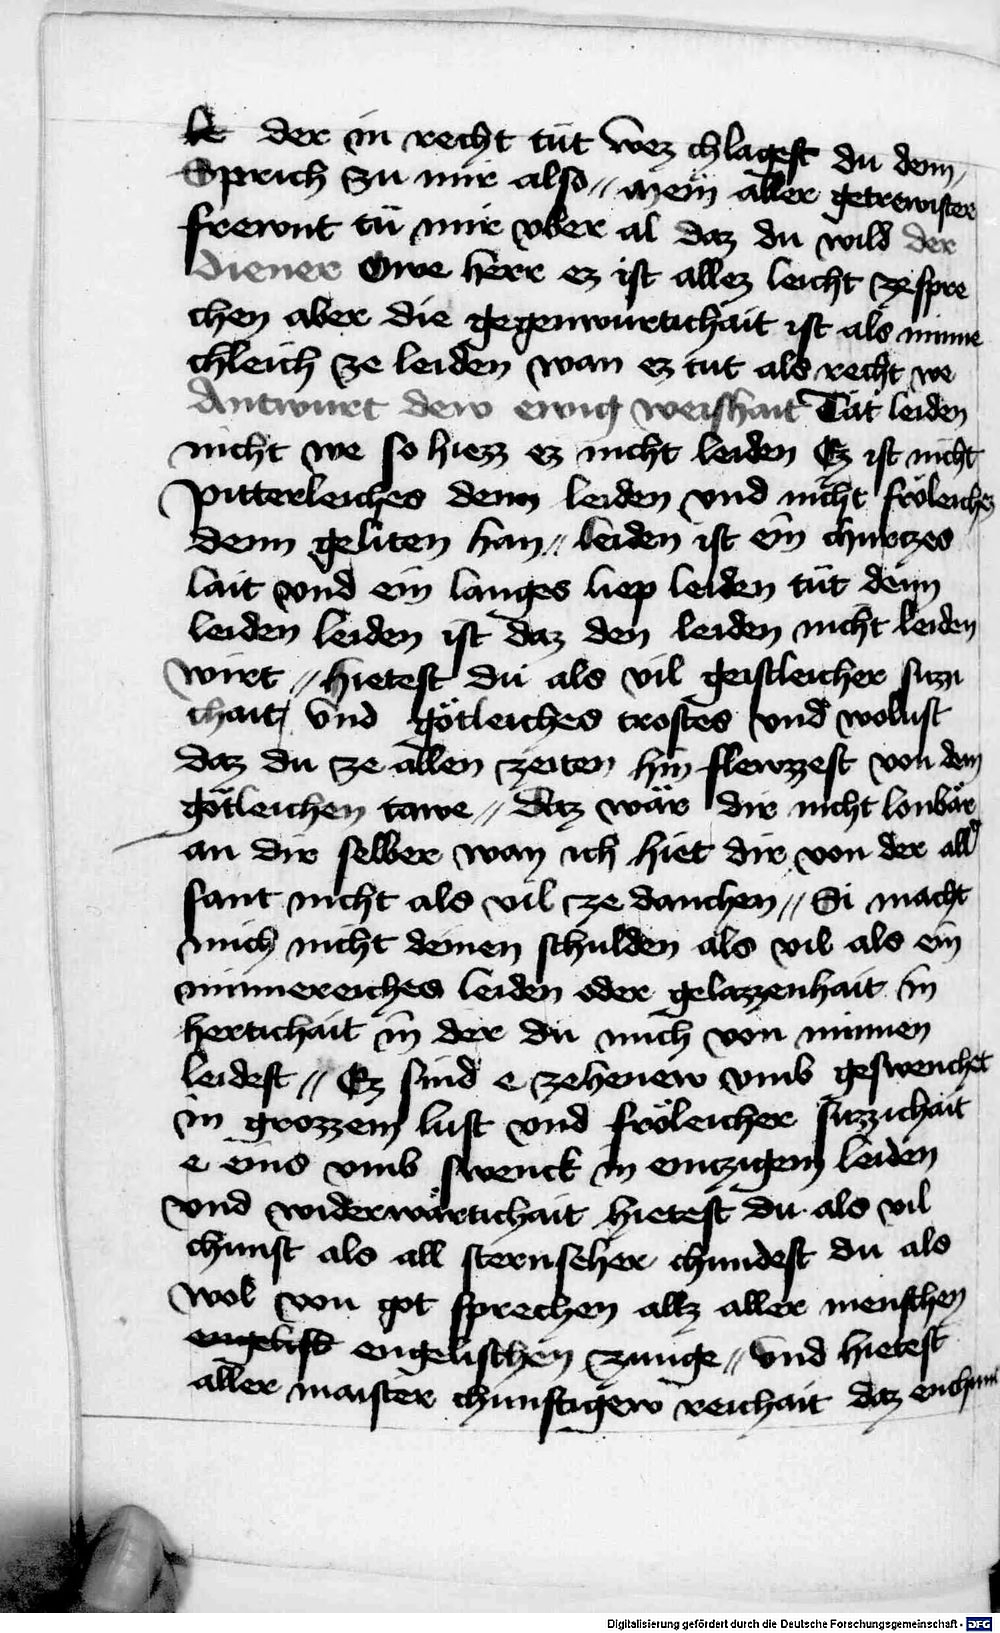 le der in recht tüt wez chlagest du denn
Sprich zu mir also // mein aller getrewister
frewnt tü mir vber al daz du wild der
diener Owe herr ez ist allez leicht zespre
chen aber die gegenwurtichait ist als minne
chleich ze leiden wan ez tut als recht we
Antwurt dew ewig weishait Tät leiden
nicht we so hiezz ez nicht leiden Ez ist nicht
pitterleiches denn leiden vnd nicht fröleichez
denn geliten han // leiden ist ein churczes
lait vnd ein langes liep leiden tüt denn
leiden leiden ist daz den leiden nicht leiden
wirt // hietest du als vil geistleicher suzzi
chait vnd götleiches trostes vnd wollust
daz du ze allen zeiten hin flewzzest von dem
götleichen tawe // daz wär dir nicht lonbär
an dir selber wan ich hiet dir von der all
sant nicht als vil ze danchen // Si macht
mich nicht deinen schulden als vil als ein
minnereiches leiden oder gelazzenhait in
hertichait in der du mich von minnen
leidest // Ez sind e zehenew vmb geswenchet
in grozzem lust vnd fröleicher suzzichait
e eins vmb swenck in emczigem leiden
vnd widerwärtichait hietest du als vil
chunst als all sternseher chundest du als
wol von got sprechen allz aller menschen
engelisch engelischen zunge // vnd hietest
aller maister chunstigew reichait daz
Digitalisierung gefördert durch die Deutsche Forschungsgemeinschaft - DFG